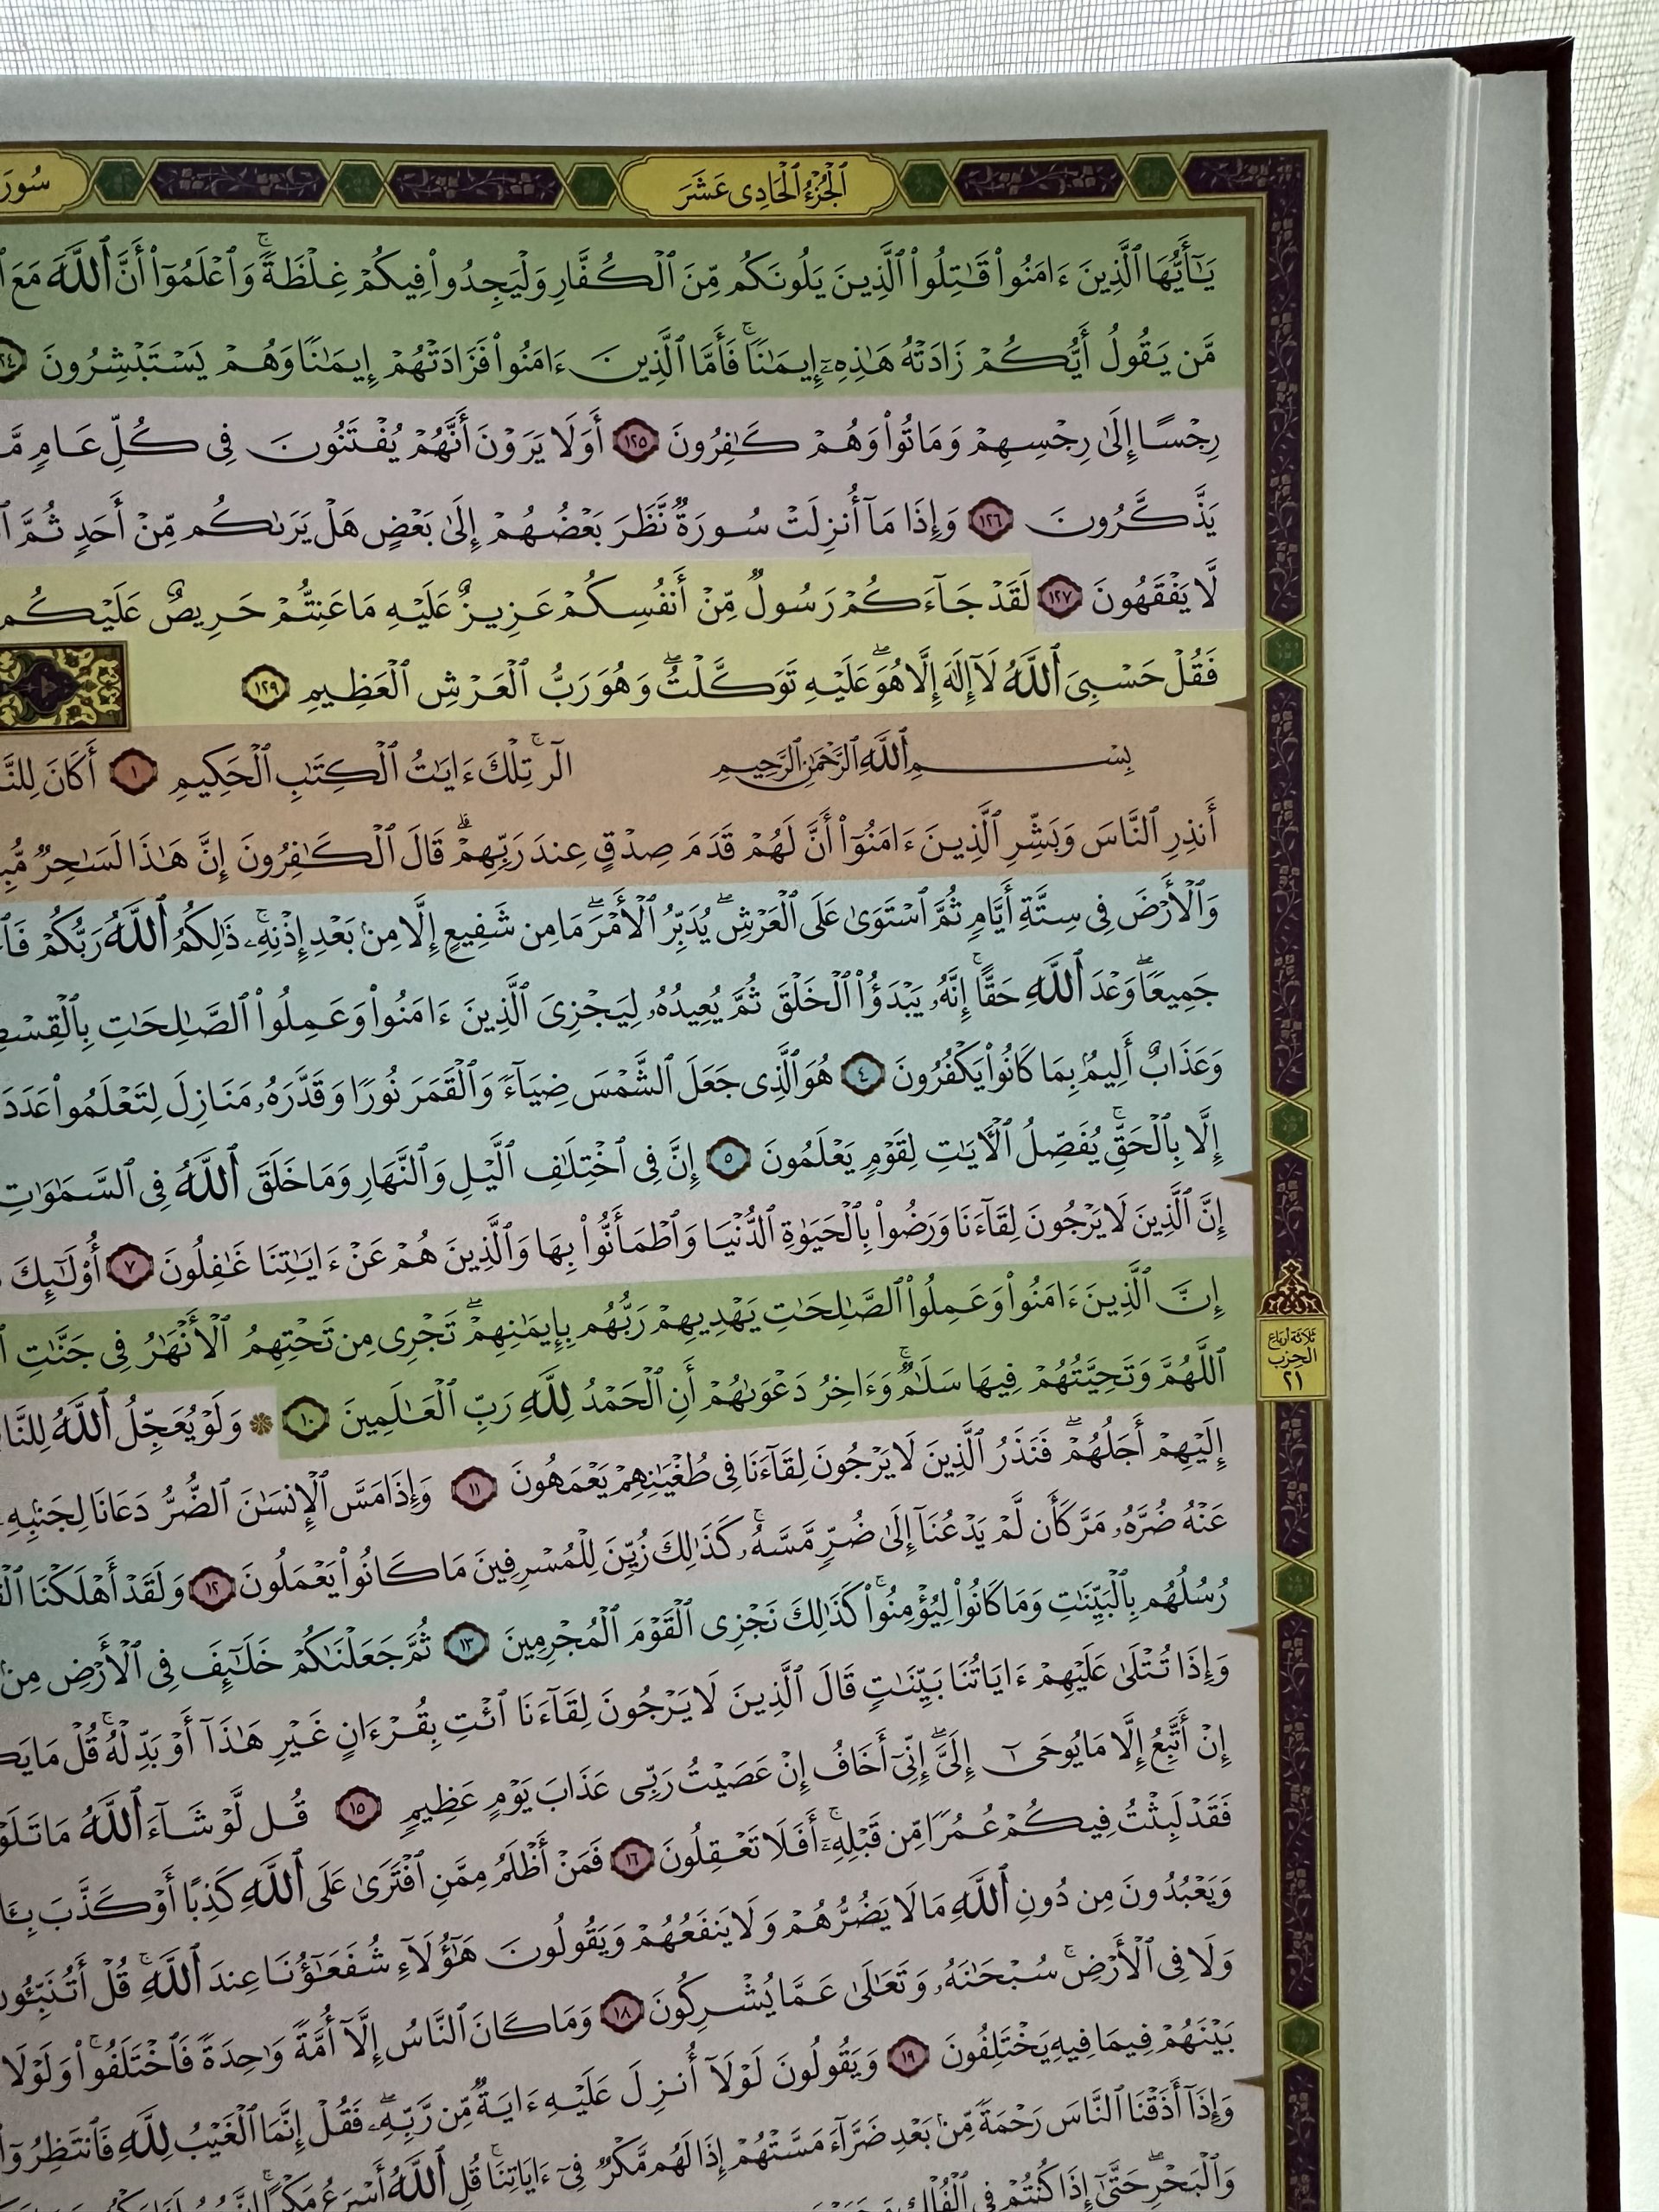 ٱلْجُزْءُ ٱلْحَادِى عَشَرَ
يَـٰٓأَيُّهَا ٱلَّذِينَ ءَامَنُوا۟ قَـٰتِلُوا۟ ٱلَّذِينَ يَلُونَكُم مِّنَ ٱلْكُفَّارِ وَلْيَجِدُوا۟ فِيكُمْ غِلْظَةً ۚ وَٱعْلَمُوٓا۟ أَنَّ ٱللَّهَ مَعَ
مَّن يَقُولُ أَيُّكُمْ زَادَتْهُ هَـٰذِهِۦٓ إِيمَـٰنًا ۚ فَأَمَّا ٱلَّذِينَ ءَامَنُوا۟ فَزَادَتْهُمْ إِيمَـٰنًا وَهُمْ يَسْتَبْشِرُونَ
رِجْسًا إِلَىٰ رِجْسِهِمْ وَمَاتُوا۟ وَهُمْ كَـٰفِرُونَ ١٢٥ أَوَلَا يَرَوْنَ أَنَّهُمْ يُفْتَنُونَ فِى كُلِّ عَامٍ
يَذَّكَّرُونَ ١٢٦ وَإِذَا مَآ أُنزِلَتْ سُورَةٌ نَّظَرَ بَعْضُهُمْ إِلَىٰ بَعْضٍ هَلْ يَرَىٰكُم مِّنْ أَحَدٍ ثُمَّ
لَّا يَفْقَهُونَ ١٢٧ لَقَدْ جَآءَكُمْ رَسُولٌ مِّنْ أَنفُسِكُمْ عَزِيزٌ عَلَيْهِ مَا عَنِتُّمْ حَرِيصٌ عَلَيْكُم
فَقُلْ حَسْبِىَ ٱللَّهُ لَآ إِلَـٰهَ إِلَّا هُوَ ۖ عَلَيْهِ تَوَكَّلْتُ ۖ وَهُوَ رَبُّ ٱلْعَرْشِ ٱلْعَظِيمِ ١٢٩
بِسْمِ ٱللَّهِ ٱلرَّحْمَـٰنِ ٱلرَّحِيمِ الٓر ۚ تِلْكَ ءَايَـٰتُ ٱلْكِتَـٰبِ ٱلْحَكِيمِ ١ أَكَانَ
أَنذِرِ ٱلنَّاسَ وَبَشِّرِ ٱلَّذِينَ ءَامَنُوٓا۟ أَنَّ لَهُمْ قَدَمَ صِدْقٍ عِندَ رَبِّهِمْ ۗ قَالَ ٱلْكَـٰفِرُونَ إِنَّ هَـٰذَا لَسَـٰحِرٌ
وَٱلْأَرْضَ فِى سِتَّةِ أَيَّامٍ ثُمَّ ٱسْتَوَىٰ عَلَى ٱلْعَرْشِ ۖ يُدَبِّرُ ٱلْأَمْرَ ۖ مَا مِن شَفِيعٍ إِلَّا مِنۢ بَعْدِ إِذْنِهِۦ ۚ ذَٰلِكُمُ ٱللَّهُ رَبُّكُمْ
جَمِيعًا ۖ وَعْدَ ٱللَّهِ حَقًّا ۚ إِنَّهُۥ يَبْدَؤُا۟ ٱلْخَلْقَ ثُمَّ يُعِيدُهُۥ لِيَجْزِىَ ٱلَّذِينَ ءَامَنُوا۟ وَعَمِلُوا۟ ٱلصَّـٰلِحَـٰتِ
وَعَذَابٌ أَلِيمٌۢ بِمَا كَانُوا۟ يَكْفُرُونَ ٤ هُوَ ٱلَّذِى جَعَلَ ٱلشَّمْسَ ضِيَآءً وَٱلْقَمَرَ نُورًا وَقَدَّرَهُۥ مَنَازِلَ لِتَعْلَمُوا۟ عَدَدَ
إِلَّا بِٱلْحَقِّ ۚ يُفَصِّلُ ٱلْـَٔايَـٰتِ لِقَوْمٍ يَعْلَمُونَ ٥ إِنَّ فِى ٱخْتِلَـٰفِ ٱلَّيْلِ وَٱلنَّهَارِ وَمَا خَلَقَ ٱللَّهُ فِى ٱلسَّمَـٰوَٰتِ
إِنَّ ٱلَّذِينَ لَا يَرْجُونَ لِقَآءَنَا وَرَضُوا۟ بِٱلْحَيَوٰةِ ٱلدُّنْيَا وَٱطْمَأَنُّوا۟ بِهَا وَٱلَّذِينَ هُمْ عَنْ ءَايَـٰتِنَا غَـٰفِلُونَ ٧ أُو۟لَـٰٓئِكَ
إِنَّ ٱلَّذِينَ ءَامَنُوا۟ وَعَمِلُوا۟ ٱلصَّـٰلِحَـٰتِ يَهْدِيهِمْ رَبُّهُم بِإِيمَـٰنِهِمْ ۖ تَجْرِى مِن تَحْتِهِمُ ٱلْأَنْهَـٰرُ فِى جَنَّـٰتِ
ثَلَاثَة أَرْبَاع
الحِزب
٢١
ٱللَّهُمَّ وَتَحِيَّتُهُمْ فِيهَا سَلَـٰمٌ ۚ وَءَاخِرُ دَعْوَىٰهُمْ أَنِ ٱلْحَمْدُ لِلَّهِ رَبِّ ٱلْعَـٰلَمِينَ ١٠ وَلَوْ يُعَجِّلُ ٱللَّهُ
إِلَيْهِمْ أَجَلُهُمْ ۖ فَنَذَرُ ٱلَّذِينَ لَا يَرْجُونَ لِقَآءَنَا فِى طُغْيَـٰنِهِمْ يَعْمَهُونَ ١١ وَإِذَا مَسَّ ٱلْإِنسَـٰنَ ٱلضُّرُّ دَعَانَا لِجَنۢبِهِۦٓ
عَنْهُ ضُرَّهُۥ مَرَّ كَأَن لَّمْ يَدْعُنَآ إِلَىٰ ضُرٍّ مَّسَّهُۥ ۚ كَذَٰلِكَ زُيِّنَ لِلْمُسْرِفِينَ مَا كَانُوا۟ يَعْمَلُونَ ١٢ وَلَقَدْ أَهْلَكْنَا
رُسُلُهُم بِٱلْبَيِّنَـٰتِ وَمَا كَانُوا۟ لِيُؤْمِنُوا۟ ۚ كَذَٰلِكَ نَجْزِى ٱلْقَوْمَ ٱلْمُجْرِمِينَ ١٣ ثُمَّ جَعَلْنَـٰكُمْ خَلَـٰٓئِفَ فِى ٱلْأَرْضِ مِنۢ
وَإِذَا تُتْلَىٰ عَلَيْهِمْ ءَايَاتُنَا بَيِّنَـٰتٍ قَالَ ٱلَّذِينَ لَا يَرْجُونَ لِقَآءَنَا ٱئْتِ بِقُرْءَانٍ غَيْرِ هَـٰذَآ أَوْ بَدِّلْهُ ۚ قُلْ مَا
إِنْ أَتَّبِعُ إِلَّا مَا يُوحَىٰٓ إِلَىَّ ۖ إِنِّىٓ أَخَافُ إِنْ عَصَيْتُ رَبِّى عَذَابَ يَوْمٍ عَظِيمٍ ١٥ قُل لَّوْ شَآءَ ٱللَّهُ مَا
فَقَدْ لَبِثْتُ فِيكُمْ عُمُرًا مِّن قَبْلِهِۦٓ ۚ أَفَلَا تَعْقِلُونَ ١٦ فَمَنْ أَظْلَمُ مِمَّنِ ٱفْتَرَىٰ عَلَى ٱللَّهِ كَذِبًا أَوْ كَذَّبَ
وَيَعْبُدُونَ مِن دُونِ ٱللَّهِ مَا لَا يَضُرُّهُمْ وَلَا يَنفَعُهُمْ وَيَقُولُونَ هَـٰٓؤُلَآءِ شُفَعَـٰٓؤُنَا عِندَ ٱللَّهِ ۚ قُلْ
وَلَا فِى ٱلْأَرْضِ ۚ سُبْحَـٰنَهُۥ وَتَعَـٰلَىٰ عَمَّا يُشْرِكُونَ ١٨ وَمَا كَانَ ٱلنَّاسُ إِلَّآ أُمَّةً وَٰحِدَةً فَٱخْتَلَفُوا۟ ۚ وَلَوْلَا
بَيْنَهُمْ فِيمَا فِيهِ يَخْتَلِفُونَ ١٩ وَيَقُولُونَ لَوْلَآ أُنزِلَ عَلَيْهِ ءَايَةٌ مِّن رَّبِّهِۦ ۖ فَقُلْ إِنَّمَا ٱلْغَيْبُ لِلَّهِ فَٱنتَظِرُوٓا۟
وَإِذَآ أَذَقْنَا ٱلنَّاسَ رَحْمَةً مِّنۢ بَعْدِ ضَرَّآءَ مَسَّتْهُمْ إِذَا لَهُم مَّكْرٌ فِىٓ ءَايَاتِنَا ۚ قُلِ ٱللَّهُ أَسْرَعُ مَكْرًا
وَٱلْبَحْرِ ۖ حَتَّىٰٓ إِذَا كُنتُمْ فِى ٱلْفُلْكِ